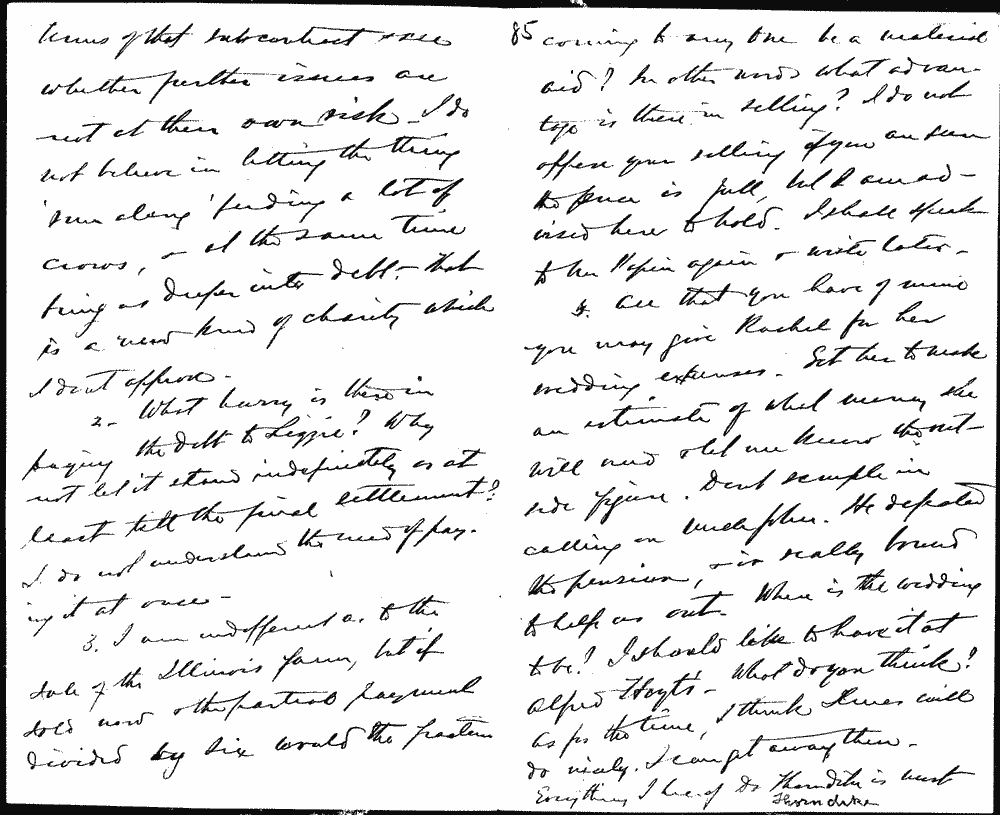 terms of that subcontract & see
whether further issues are
not at their own risk. I do
not believe in letting the thing
'run along' feeding a lot of
crows, & at the same time
bring us deeper into debt. That
is a new kind of charity which
I dont approve.
2. What hurry is there in
paying the debt to Lizzie? Why
not let it stand indefinitely or at
least till the final settlement?
I do not understand the need of pay-
ing it at once.
3. I am indifferent as to the
sale of the Illinois farm, but if
sold now & the partial payment
divided by six would the fraction
85
coming to any one be a material
aid? In other words what advan-
tage is there in selling? I do not
oppose your selling if you are sure
the price is full, but I am ad-
vised here to hold. I shall speak
to again & write later.
4. All that you have of mine
you may give Rachel for her
wedding expenses. Get her to make
an estimate of what money she
will need & let me know the out-
side figure. Dont scruple in
calling on Uncle John. He defeated
the pension, & is really bound
to help us out. Where is the wedding
to be? I should like to have it at
Alfred Hoyt's. What do you think?
As for the time, I think will
do nicely. I can get away then.
Everything I hear of Dr Thorndike is most
Thorndike